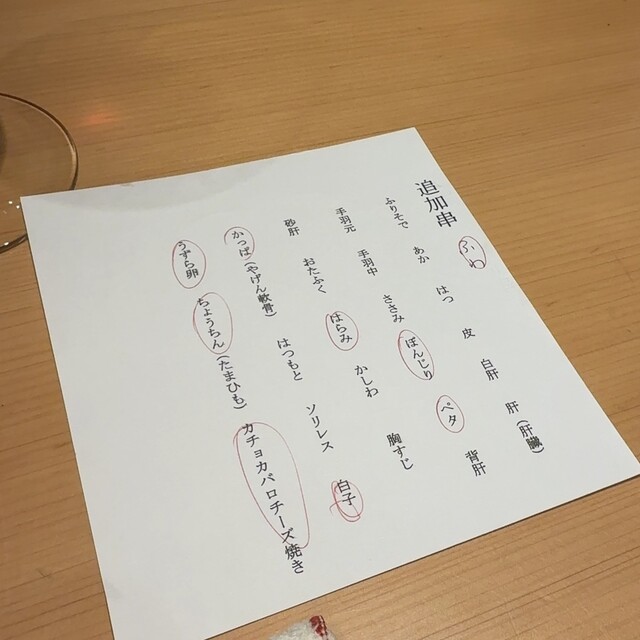 追加串
ふわ
ふりそで あか はつ 皮 白肝 肝(肝臓)
手羽元 手羽中 ささみ ぼんじり ペタ 背肝
砂肝 おたふく はらみ かしわ 胸すじ
かっぱ(やげん軟骨) はつもと ソリレス 白子
うずら卵 ちょうちん(たまひも) カチョカバロチーズ焼き